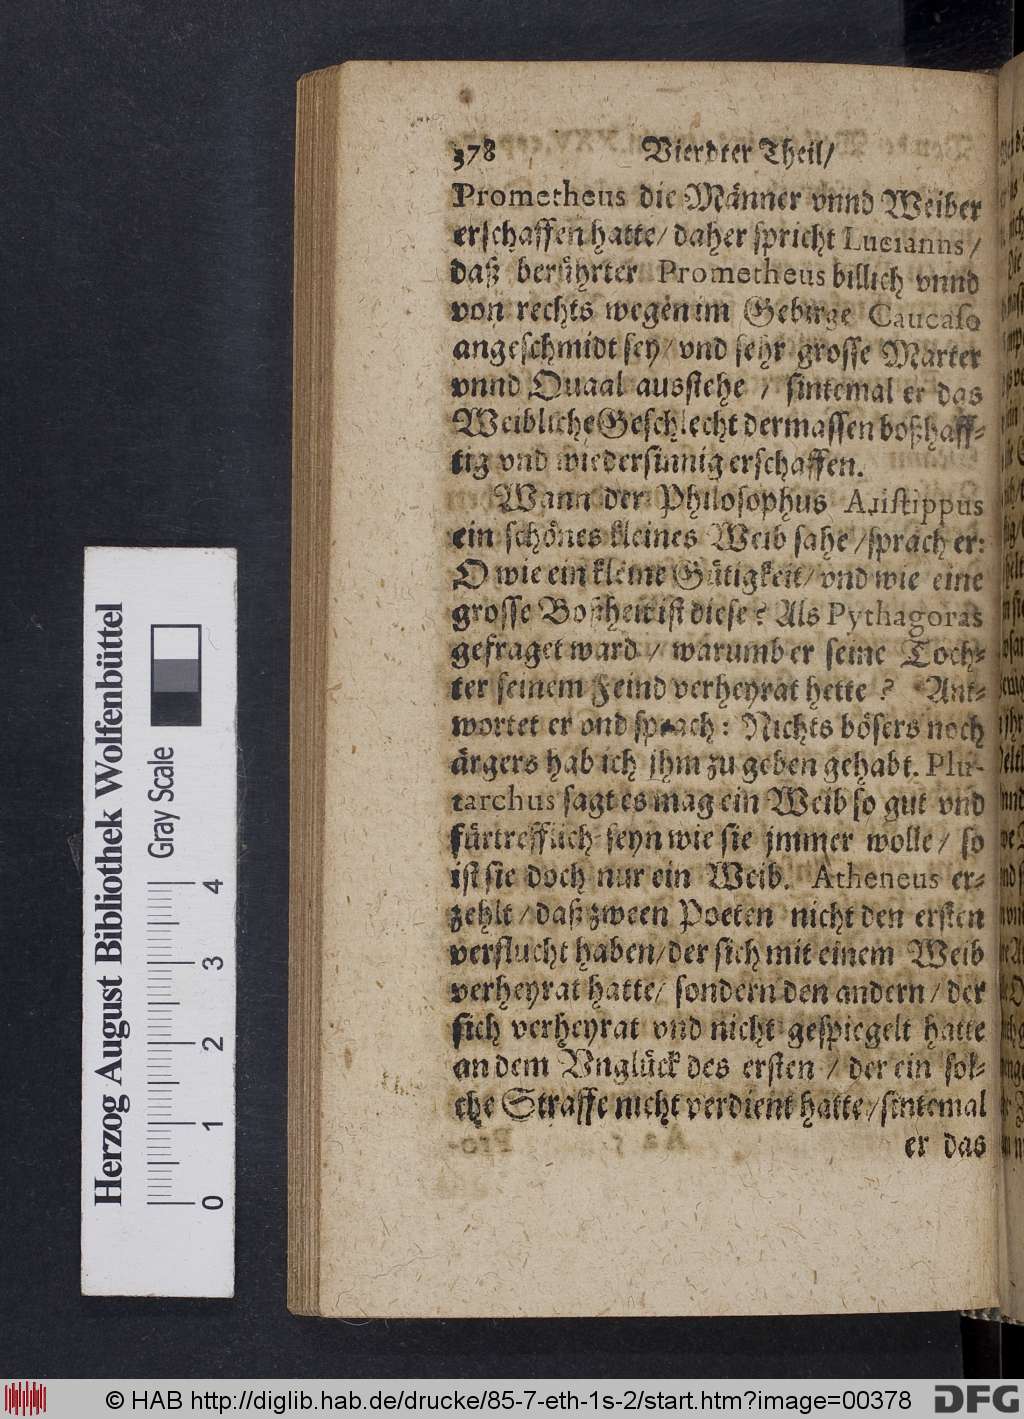 378 Vierdter Theil/
Prometheus die Männer vnnd Weiber
erschaffen hatte/ daher spricht Lucianus/
daß berührter Prometheus billich vnnd
von rechts wegen im Gebirge Caucaso
angeschmidt sey/ vnd sehr grosse Marter
vnnd Quaal ausstehe / sintemal er das
Weibliche Geschlecht dermassen boßhaff-
tig vnd wiedersinnig erschaffen.
Wann der Philosophus Aristippus
ein schönes kleines Weib sahe/ sprach er:
O wie ein kleine Gütigkeit/ vnd wie eine
grosse Boßheit ist diese? Als Pythagoras
gefraget ward / warumb er seine Toch-
ter seinem Feind verheyrat hette ? Ant-
wortet er vnd sprach: Nichts bösers noch
ärgers hab ich jhm zu geben gehabt. Plu-
tarchus sagt es mag ein Weib so gut vnd
fürtrefflich seyn wie sie jmmer wolle/ so
ist sie doch nur ein Weib. Atheneus er-
zehlt/ daß zween Poeten nicht den ersten
verflucht haben/ der sich mit einem Weib
verheyrat hatte/ sondern den andern/ der
sich verheyrat vnd nicht gespiegelt hatte
an dem Vnglück des ersten / der ein sol-
che Straffe nicht verdient hatte/ sintemal
er das
Herzog August Bibliothek Wolfenbüttel
Gray Scale
0 1 2 3 4
© HAB http://diglib.hab.de/drucke/85-7-eth-1s-2/start.htm?image=00378
DFG